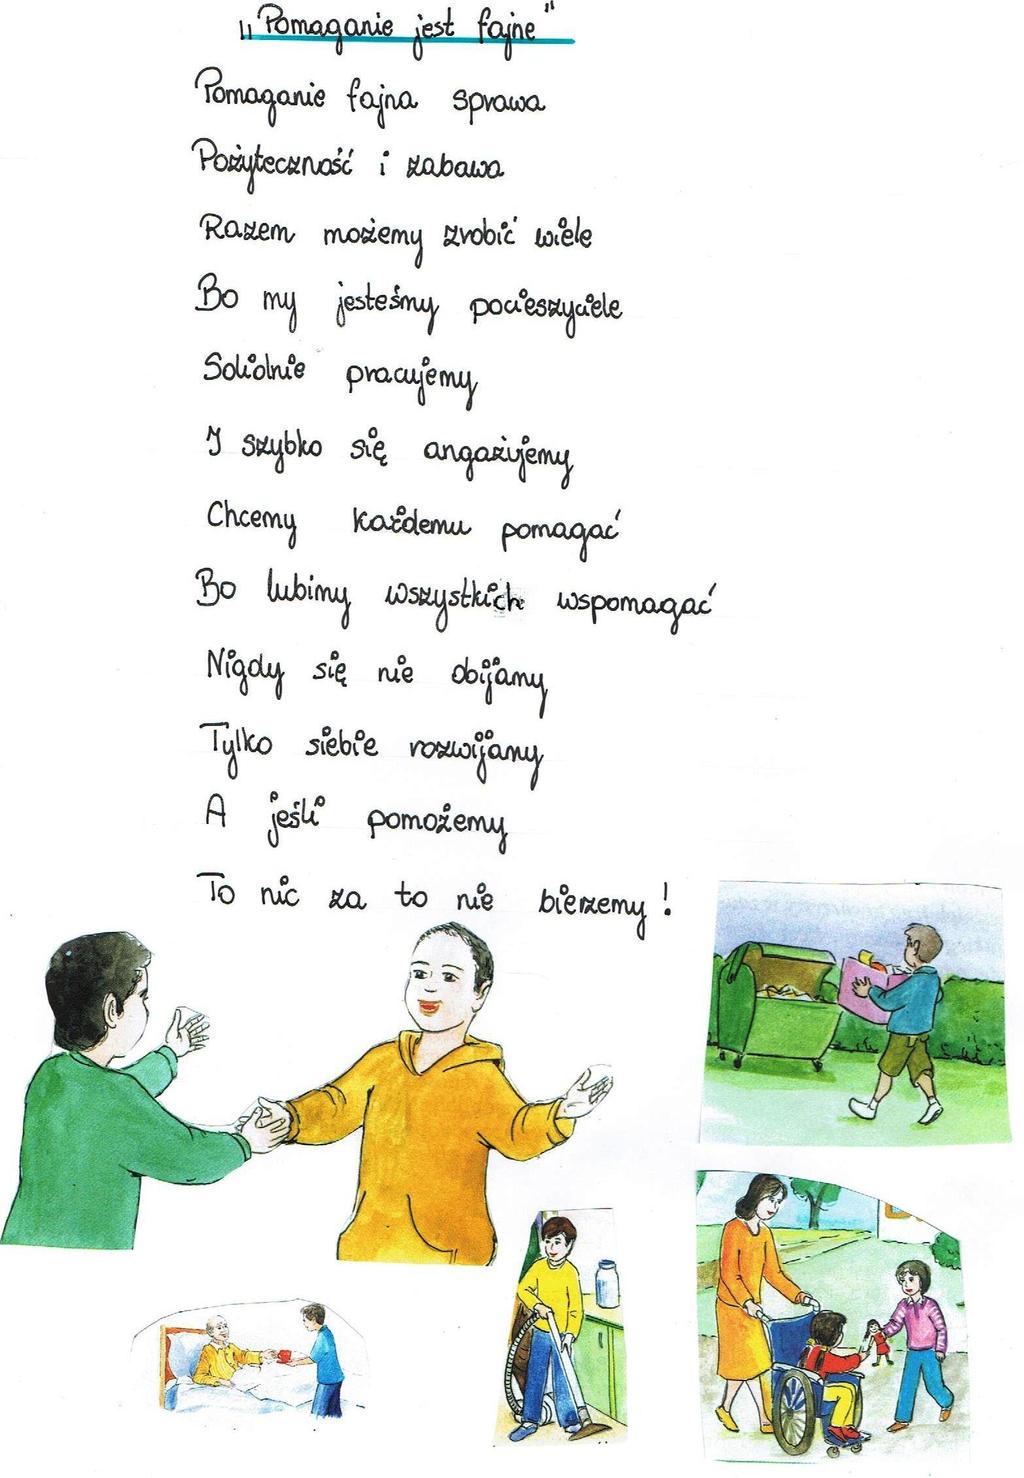 „Pomaganie jest fajne”
Pomaganie fajna sprawa
Pożyteczność i zabawa
Razem możemy zrobić wiele
Bo my jesteśmy pocieszyciele
Solidnie pracujemy
I szybko się angażujemy
Chcemy każdemu pomagać
Bo lubimy wszystkich wspomagać
Nigdy się nie obijamy
Tylko siebie rozwijamy
A jeśli pomożemy
To nic za to nie bierzemy!